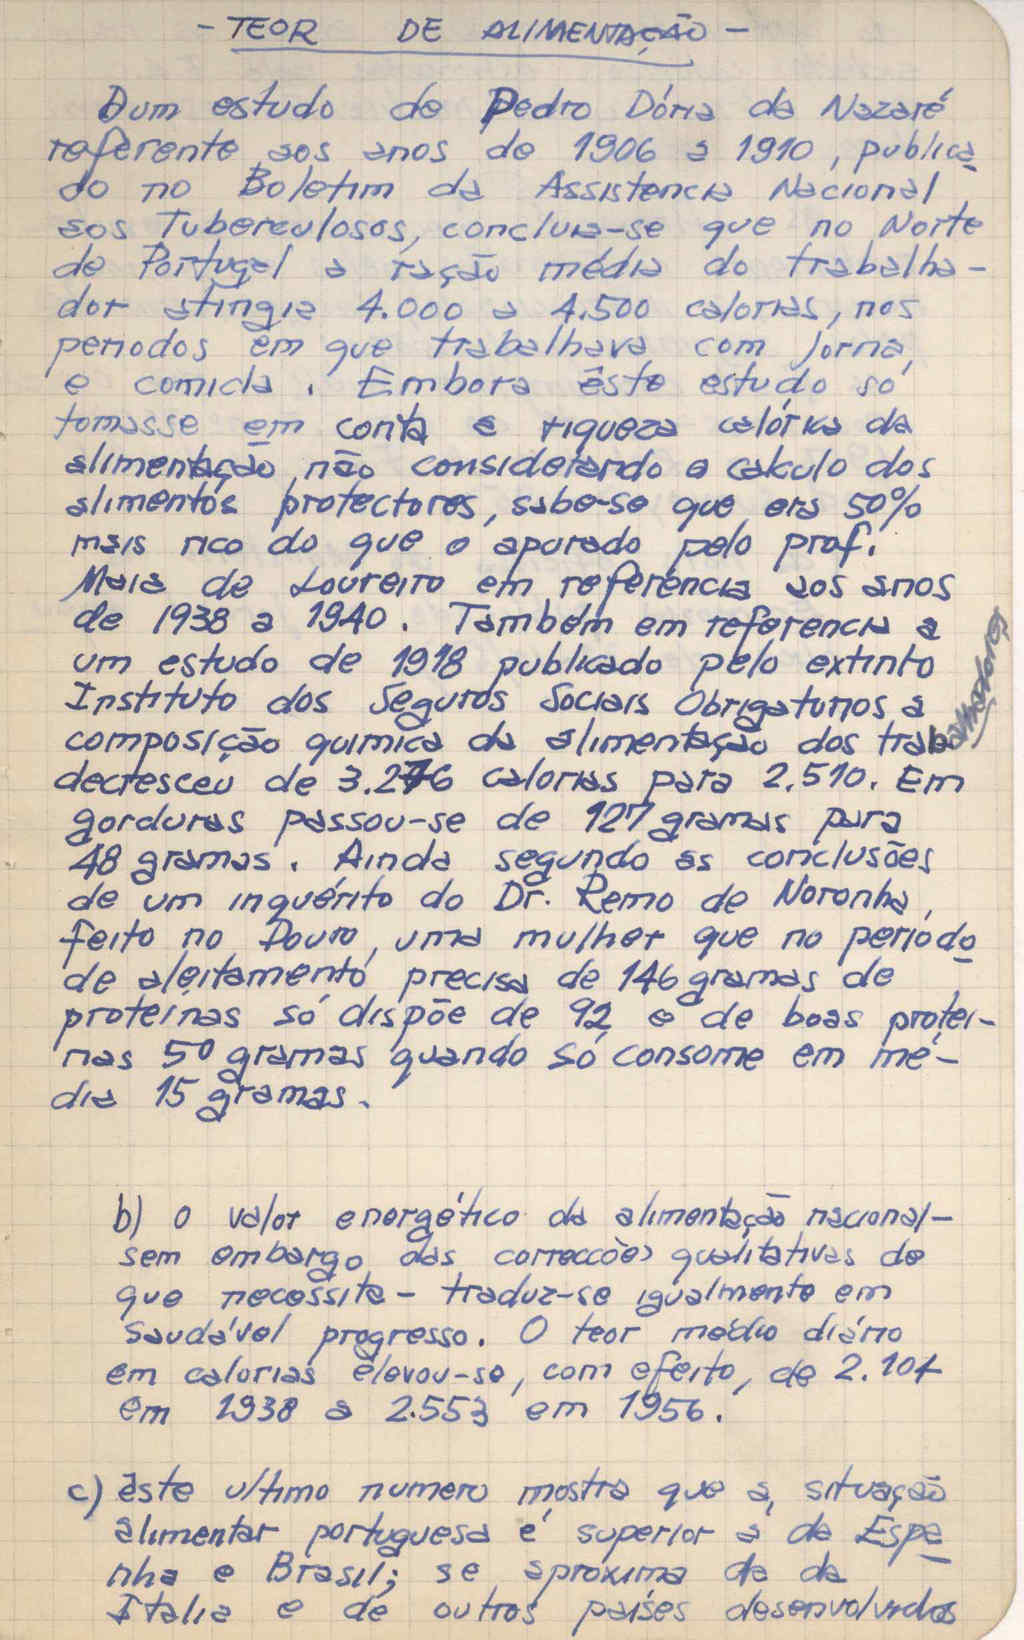 - TEOR DE ALIMENTAÇÃO -
Dum estudo de Pedro Dória da Nazaré
referente aos anos de 1906 a 1910, publica
do no Boletim da Assistencia Nacional
aos Tuberculosos, concluia-se que no Norte
de Portugal a ração média do trabalha-
dor atingia 4.000 a 4.500 calorias, nos
periodos em que trabalhava com jorna,
e comida. Embora êste estudo só
tomasse em conta a riqueza calórica da
alimentação não considerando o calculo dos
alimentos protectores, sabe-se que era 50%
mais rico do que o apurado pelo prof.
Maia de Loureiro em referência aos anos
de 1938 a 1940. Também em referencia a
um estudo de 1918 publicado pelo extinto
Instituto dos Seguros Sociais Obrigatorios a
composição quimica da alimentação dos trabalhadores
decresceu de 3.276 calorias para 2.510. Em
gorduras passou-se de 127 gramas para
48 gramas. Ainda segundo as conclusões
de um inquérito do Dr. Remo de Noronha,
feito no Douro, uma mulher que no periodo
de aleitamento precisa de 146 gramas de
proteínas só dispõe de 92 e de boas protei-
nas 50 gramas quando só consome em mé-
dia 15 gramas.
b) o valor energético da alimentação nacional -
sem embargo das correcções qualitativas de
que necessita - traduz-se igualmente em
saudável progresso. O teor médio diário
em calorias elevou-se, com efeito, de 2.104
em 1938 a 2.553 em 1956.
c) êste ultimo numero mostra que a situação
alimentar portuguesa é superior à da Espa
nha e Brasil; se aproxima da da
Italia e de outros países desenvolvidos